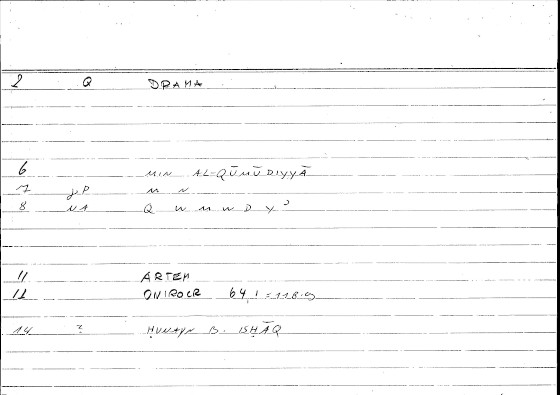 2 Q DRAMA
6 MIN AL-QŪMŪDIYYĀ
7 M N
8 NA Q W M W D Y ʾ
11 ARTEM
12 ONIROCR 64,1 = 118.9
14 ? ḤUNAYN B. ISḤĀQ